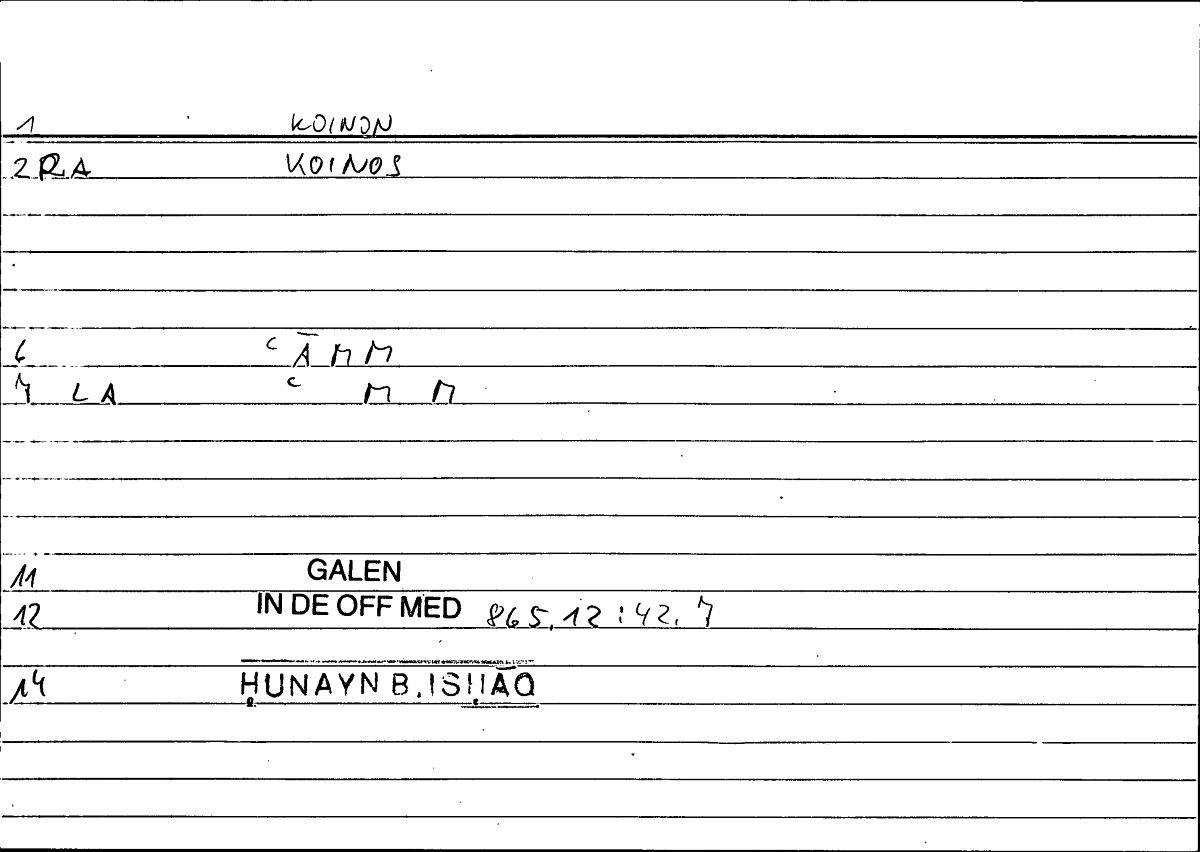 1 KOINON
2 RA KOINOS
6 ʿĀMM
7 LA ʿ M M
11 GALEN
12 IN DE OFF MED 865,12:42,7
14 ḤUNAYN B. ISḤĀQ